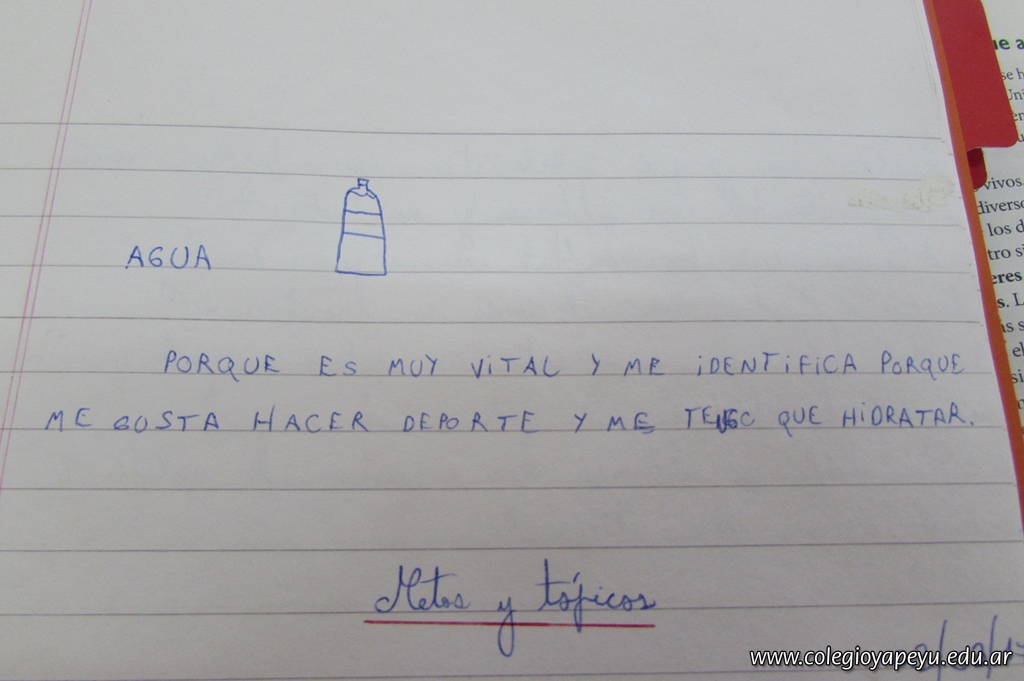 AGUA
PORQUE ES MUY VITAL Y ME IDENTIFICA PORQUE
ME GUSTA HACER DEPORTE Y ME TENGO QUE HIDRATAR.
Metas y tópicos
www.colegioyapeyu.edu.ar
vivos.
diverso
los d
tro si
eres
s. L